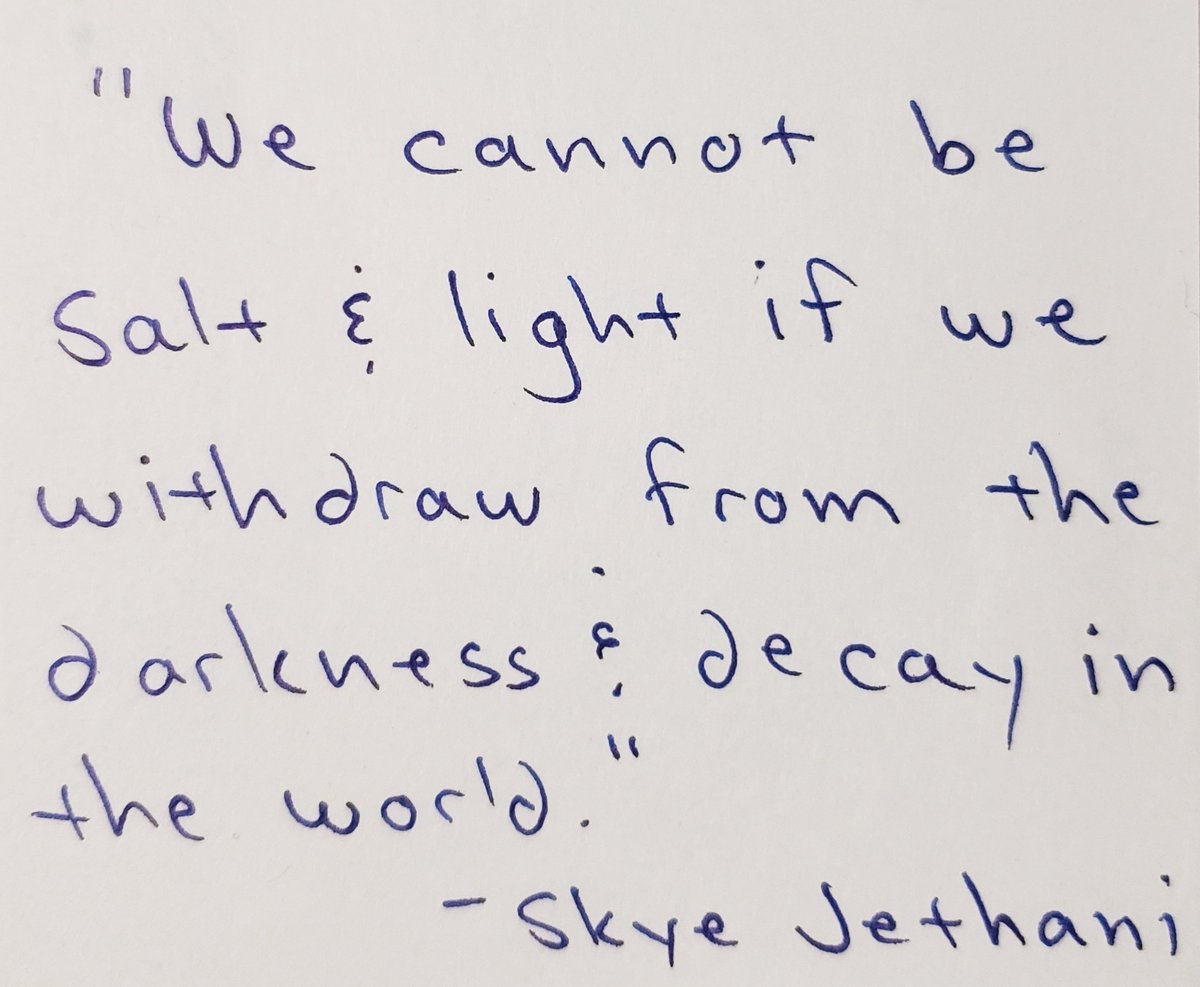 "We cannot be
salt & light if we
withdraw from the
darkness & decay in
the world."
- Skye Jethani